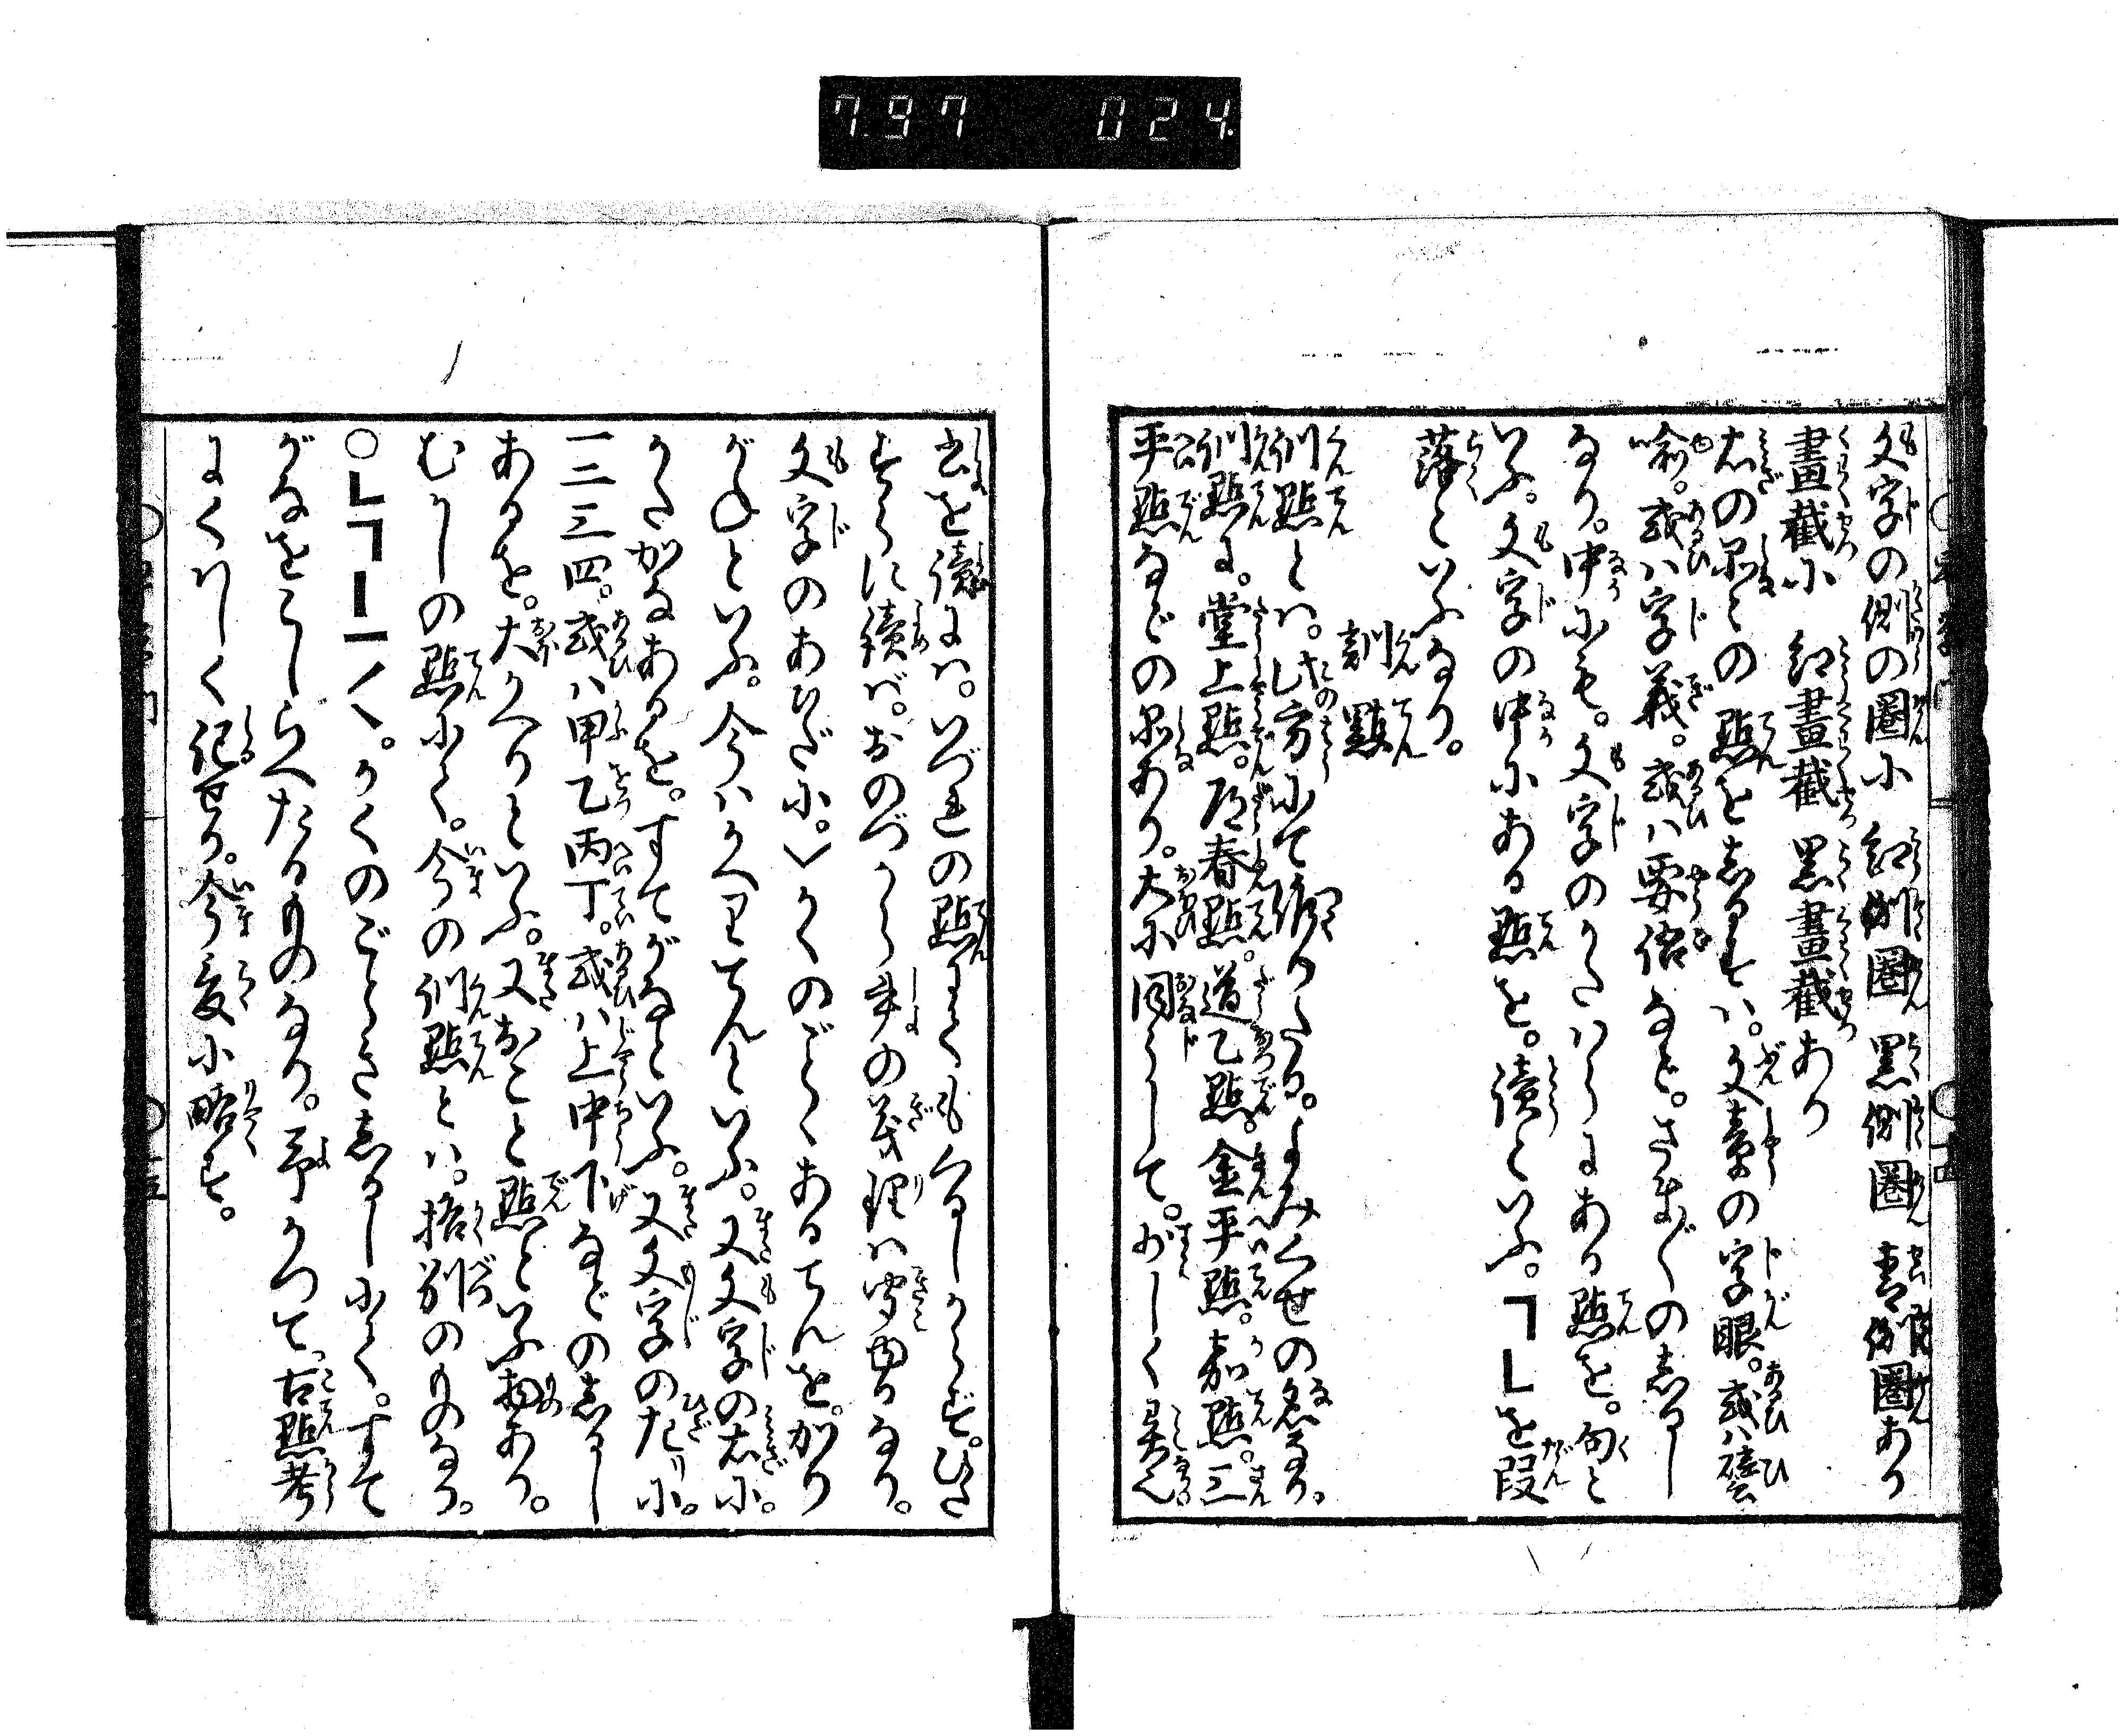 797 024
文字の側の圏に 紅側圏 黒側圏 青側圏あり
畫截に 紅畫截 黒畫截あり
右の品々の點をしるすハ。文章の字眼。或ハ譬
喩。或ハ字義。或ハ要語など。さま〲のしるし
なり。中にも。文字のかたハらにある點を。句と
いふ。文字の中にある點を。讀といふ。㇕Lを段
落といふなり。
訓點
訓點とハ。此方にて作りたる。よみくせの名なり。
訓點に。堂上點。道春點。道乙點。金平點。嘉點。三
平點などの品あり。大小同うして。少しく異也
書を讀にハ。いづれの點にても くるしからず。ひた
すらに讀バ。おのづから其の義理ハ聞ゆるなり。
文字のあひだに。㇑かくのごとくあるてんを。かり
がねといふ。今ハかへりてんといふ。又文字の右に。
かたかなあるを。すてがなといふ。又文字の左リに。
一二三四。或ハ甲乙丙丁。或ハ上中下などのしるし
あるを。大かへりといふ。又おこと點といふ物あり。
むかしの點にて。今の訓點とハ。格別のものなり。
○L㇕|一く。かくのごときしるしにて。すて
がなをこしらへたるものなり。予かつて。古點考
にくハしく記せり。今爰に略す。